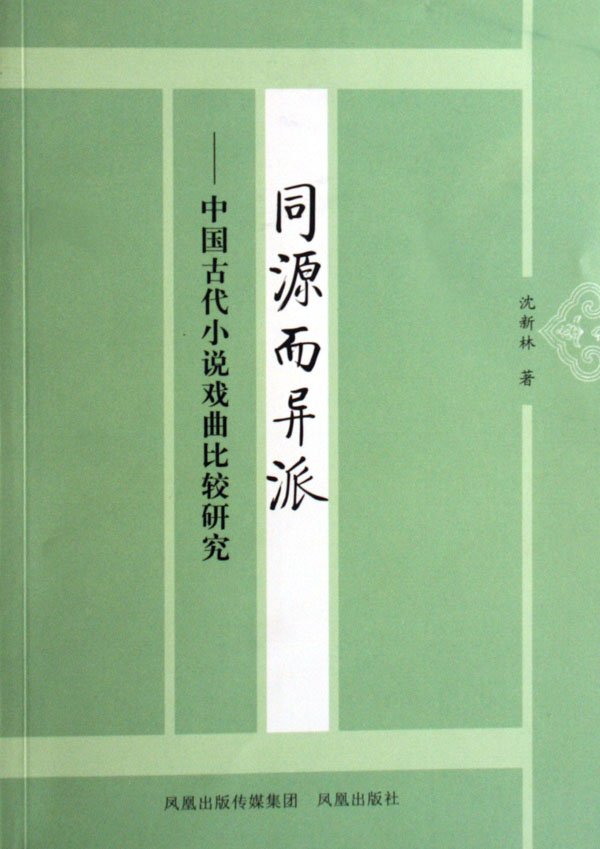 同源而异派
——中国古代小说戏曲比较研究
沈新林 著
凤凰出版传媒集团 凤凰出版社